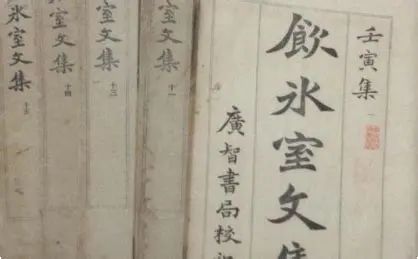 壬寅集 一
飲冰室文集
廣智書局校
冰室文集 十一
冰室文集 十三
冰室文集 十四
冰室文集